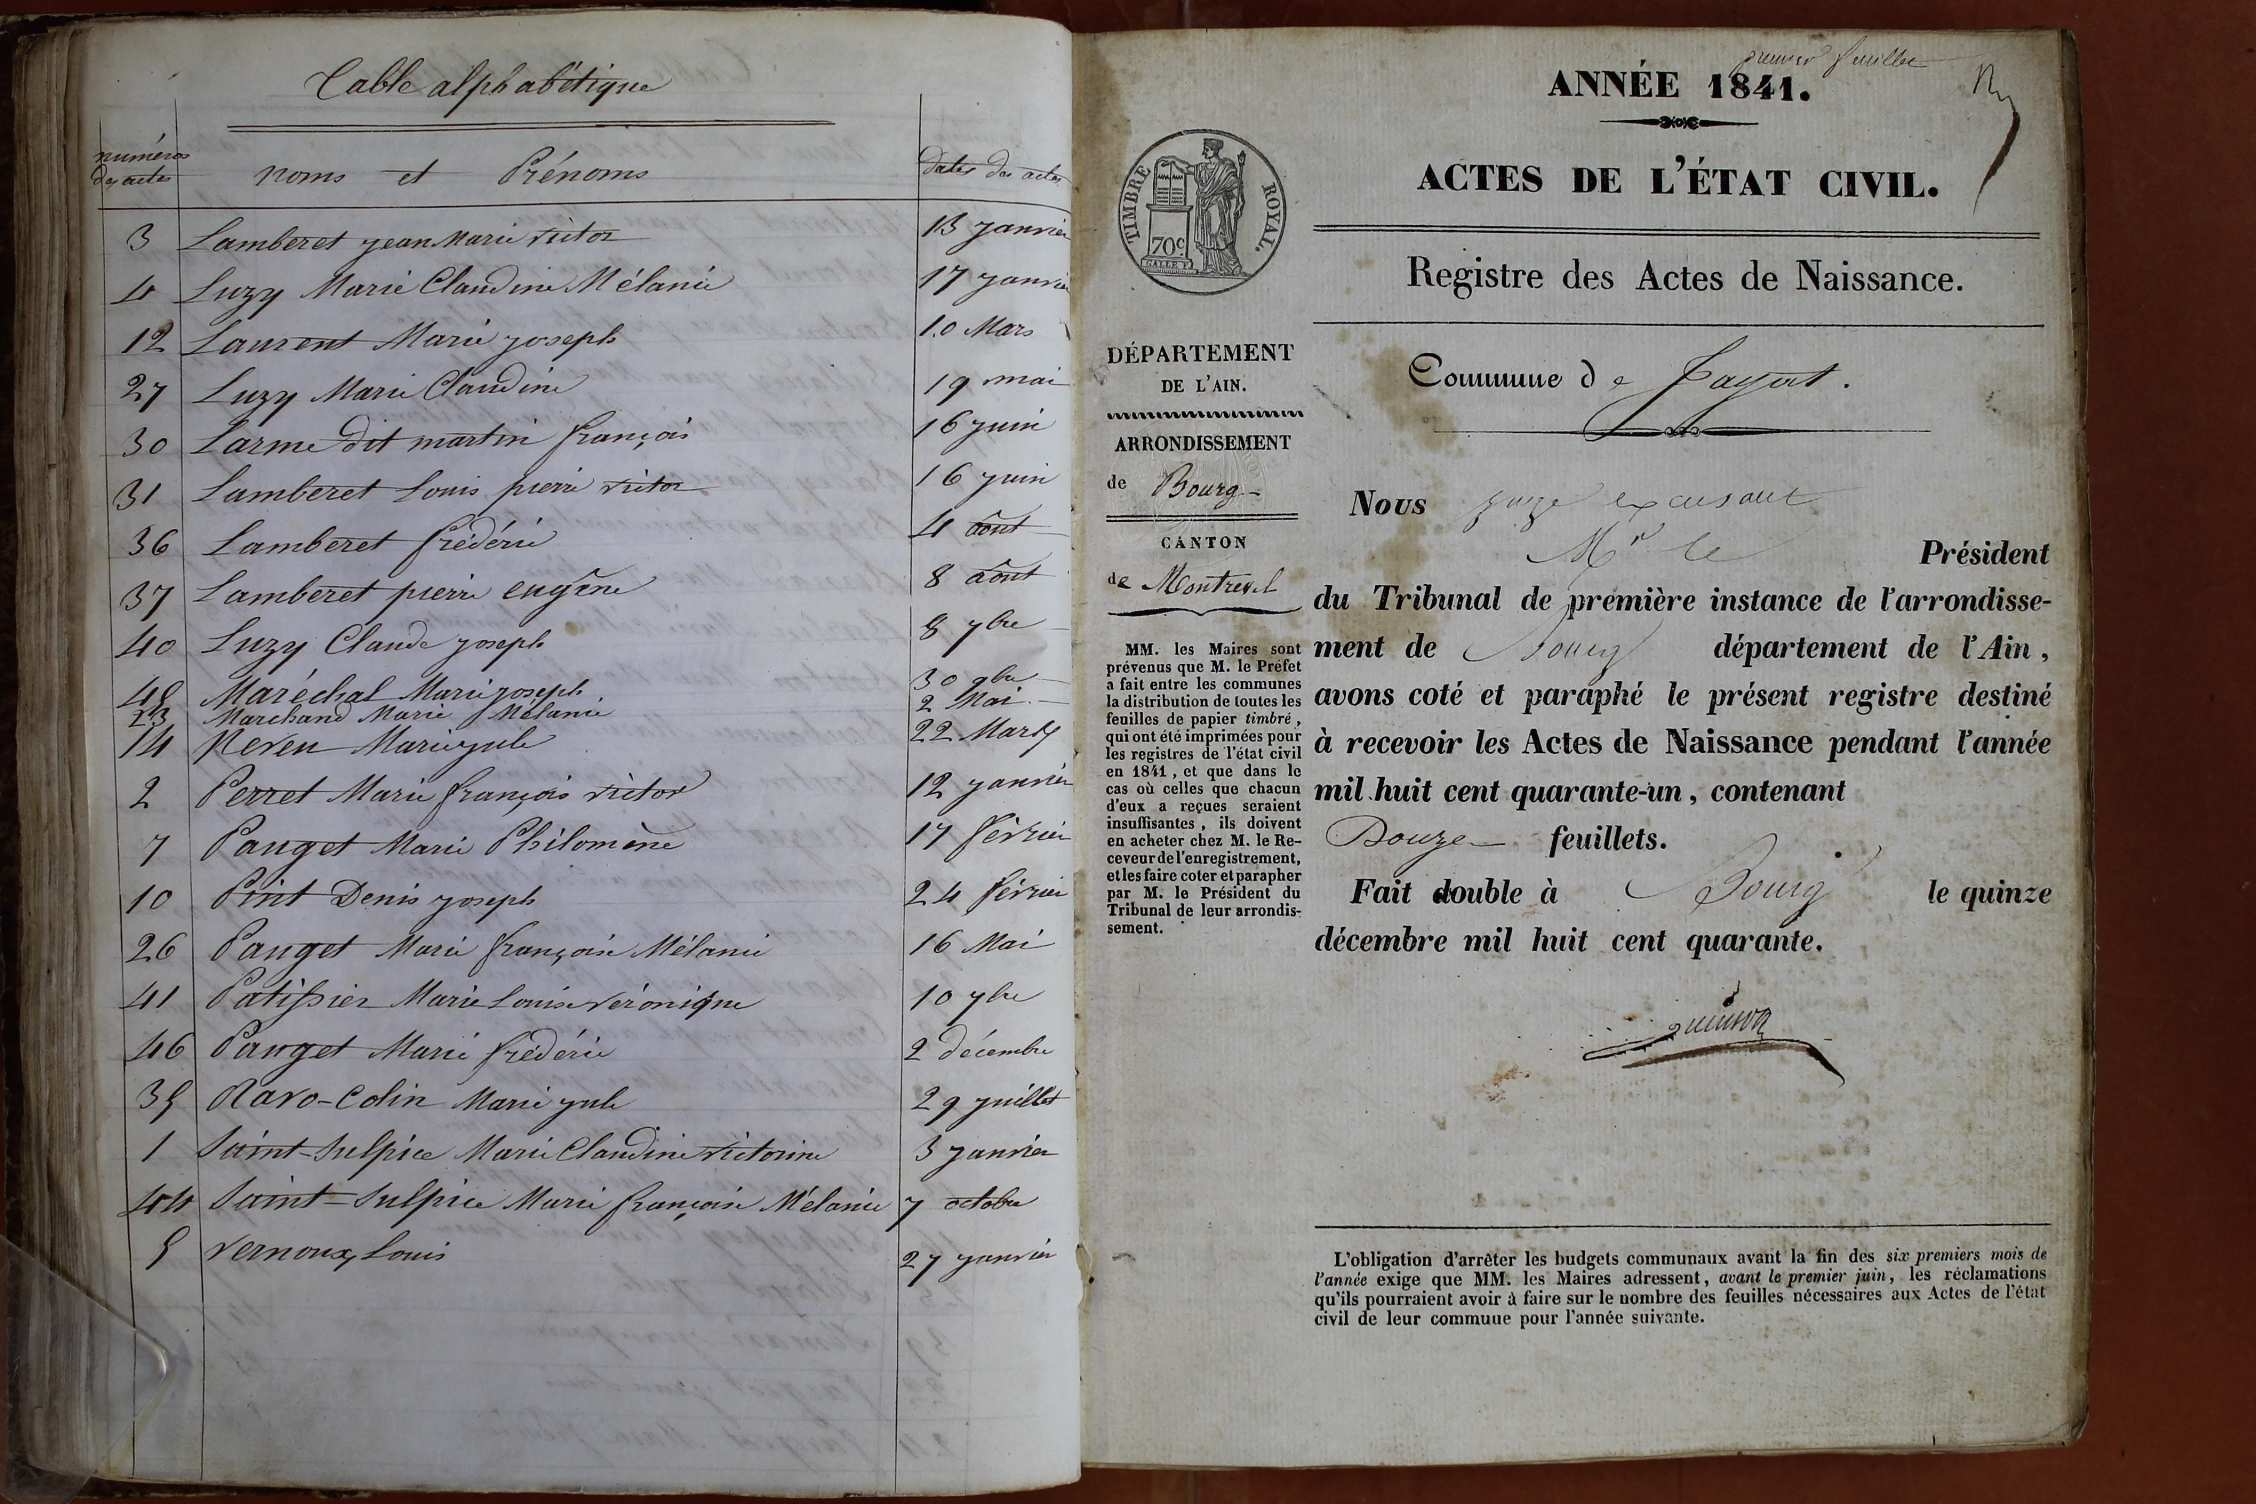 Table alphabétique
numéros des actes noms et Prénoms dates des actes
3 Lamberet jean Marie victor 13 janvier
4 Luzy Marie Claudine Mélanie 17 janvier
12 Laurent Marie joseph 10 Mars
27 Luzy Marie Claudine 19 mai
30 Larme dit martin françois 16 juin
31 Lamberet Louis pierre victor 16 juin
36 Lamberet frédéric 4 août
37 Lamberet pierre eugène 8 août
40 Luzy Claude joseph 8 7bre
48 Maréchal Marie joseph 30 9bre
23 Marchand Marie Mélanie 2 Mai
14 Neveu Marie jule 22 Mars
2 Perret Marie françois victor 12 janvier
7 Pauget Marie Philomène 17 février
10 Pint Denis joseph 24 février
26 Pauget Marie françoise Mélanie 16 Mai
41 Patissier Marie Louise véronique 10 7bre
46 Pauget Marie frédéric 2 décembre
35 Ravo-Colin Marie jule 29 juillet
1 Saint-Sulpice Marie Claudine victorine 3 janvier
44 Saint-Sulpice Marie françoise Mélanie 7 octobre
5 Vernoux Louis 27 janvier
premier feuillet
ANNÉE 1841.
ACTES DE L'ÉTAT CIVIL.
TIMBRE ROYAL.
70c
Registre des Actes de Naissance.
DÉPARTEMENT
DE L'AIN.
ARRONDISSEMENT
de Bourg
CANTON
de Montrevel
MM. les Maires sont
prévenus que M. le Préfet
a fait entre les communes
la distribution de toutes les
feuilles de papier timbré,
qui ont été imprimées pour
les registres de l'état civil
en 1841, et que dans le
cas où celles que chacun
d'eux a reçues seraient
insuffisantes, ils doivent
en acheter chez M. le Re-
ceveur de l'enregistrement,
et les faire coter et parapher
par M. le Président du
Tribunal de leur arrondis-
sement.
Commune de Jayat.
Nous juge excusant
Mr le Président
du Tribunal de première instance de l'arrondisse-
ment de Bourg département de l'Ain,
avons coté et paraphé le présent registre destiné
à recevoir les Actes de Naissance pendant l'année
mil huit cent quarante-un, contenant
Douze feuillets.
Fait double à Bourg le quinze
décembre mil huit cent quarante.
L'obligation d'arrêter les budgets communaux avant la fin des six premiers mois de
l'année exige que MM. les Maires adressent, avant le premier juin, les réclamations
qu'ils pourraient avoir à faire sur le nombre des feuilles nécessaires aux Actes de l'état
civil de leur commune pour l'année suivante.